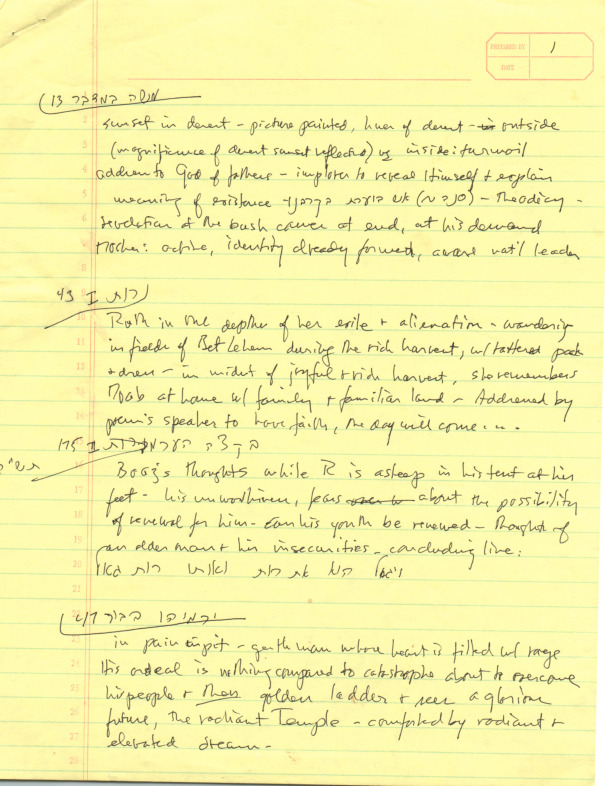 PREPARED BY 1
DATE
משה במדבר 13
sunset in desert - picture painted, hues of desert - outside
(magnificence of desert sunset reflected) vs inside: turmoil
address to God of fathers - implores to reveal Himself & explain
meaning of existence אש בוערת בקרבי - (סנה) - Theodicy -
revelation at the bush comes at end, at his demand
Moshe: active, identity already formed, aware nat'l leader
רות I 43
Ruth in the depths of her exile & alienation - wandering
in fields of Bet Lehem during the rich harvest, w/ tattered
& dress - in midst of joyful & rich harvest, she remembers
Moab at home w/ family & familiar land - Addressed by
poem's speaker to have faith, the day will come....
בקצה הערמה רות II 175
Boaz's thoughts while R is asleep in his tent at his
feet - his unworthiness, fears about the possibility
of renewal for him - can his youth be renewed - thoughts of
an older man & his insecurities - concluding line:
ויגאל הוא את רות ואותו רות
ירמיהו בבור 47
in pain in pit - gentle man whose heart is filled w/ rage
His ordeal is nothing compared to catastrophe about to overcome
his people & then golden ladder & sees a glorious
future, the radiant Temple - comforted by radiant &
elevated dream -